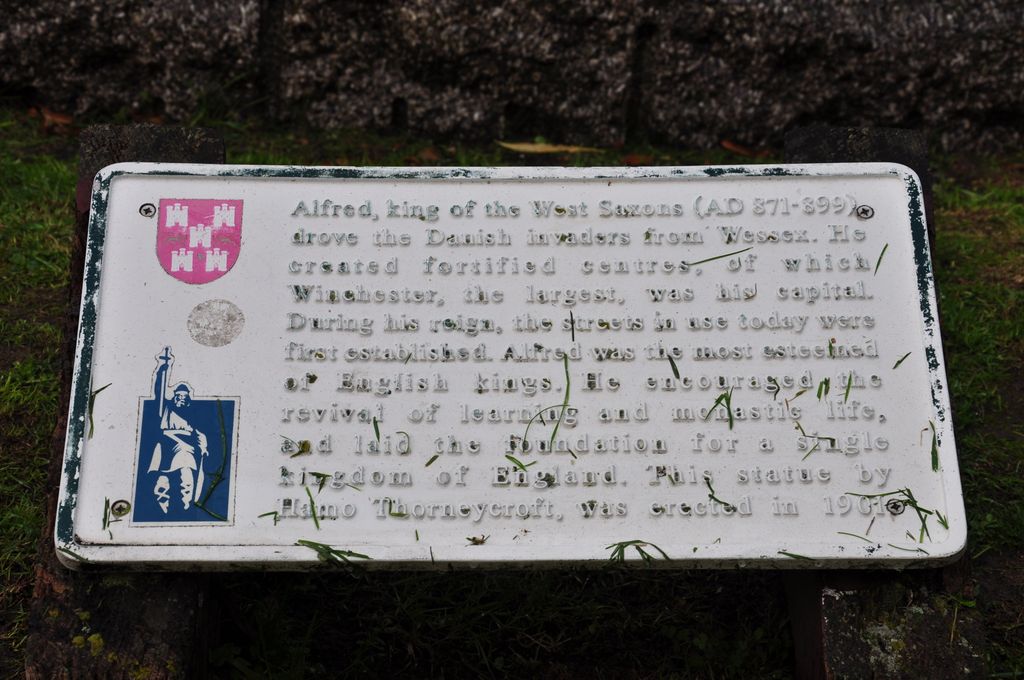 Alfred, king of the West Saxons (AD 871-899)
drove the Danish invaders from Wessex. He
created fortified centres, of which
Winchester, the largest, was his capital.
During his reign, the streets in use today were
first established. Alfred was the most esteemed
of English kings. He encouraged the
revival of learning and monastic life,
and laid the foundation for a single
kingdom of England. This statue by
Hamo Thorneycroft, was erected in 1901.